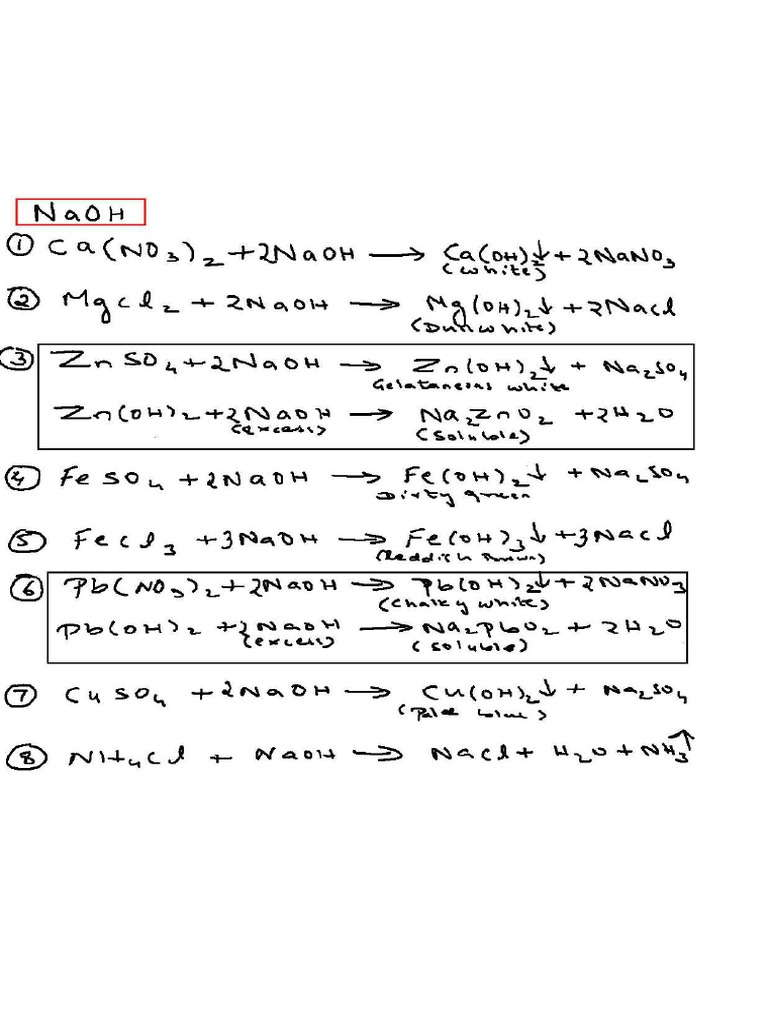 NaOH
① Ca(NO₃)₂ + 2NaOH → Ca(OH)₂↓ + 2NaNO₃
(white)
② MgCl₂ + 2NaOH → Mg(OH)₂↓ + 2NaCl
(Dull white)
③ ZnSO₄ + 2NaOH → Zn(OH)₂↓ + Na₂SO₄
Gelataneous white
Zn(OH)₂ + 2NaOH → Na₂ZnO₂ + 2H₂O
(excess) (Soluble)
④ FeSO₄ + 2NaOH → Fe(OH)₂↓ + Na₂SO₄
Dirty green
⑤ FeCl₃ + 3NaOH → Fe(OH)₃↓ + 3NaCl
(Reddish Brown)
⑥ Pb(NO₃)₂ + 2NaOH → Pb(OH)₂↓ + 2NaNO₃
(Chalky white)
Pb(OH)₂ + 2NaOH → Na₂PbO₂ + 2H₂O
(excess) (soluble)
⑦ CuSO₄ + 2NaOH → Cu(OH)₂↓ + Na₂SO₄
(Pale blue)
⑧ NH₄Cl + NaOH → NaCl + H₂O + NH₃↑